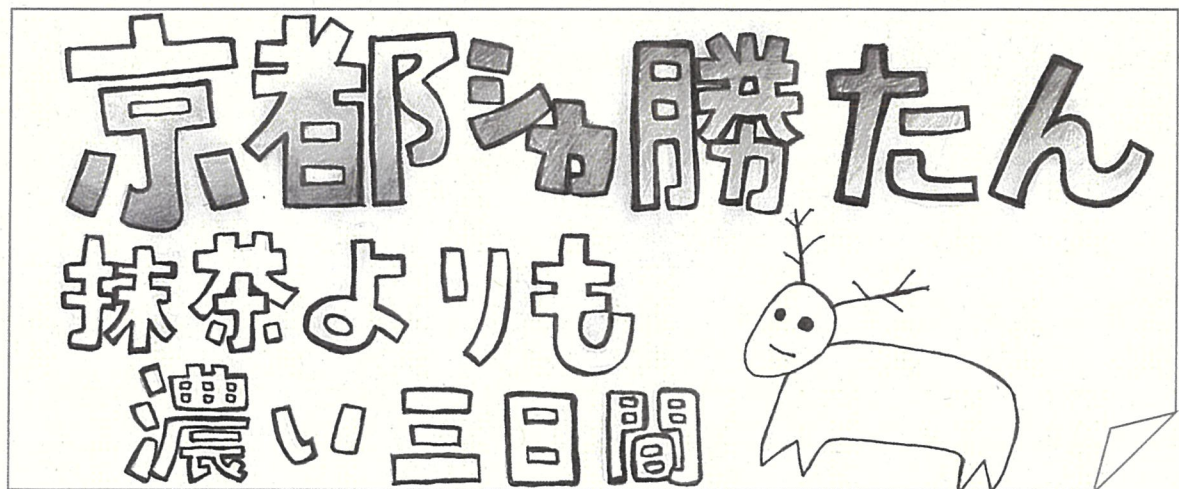 京都シカ勝たん
抹茶よりも
濃い三日間